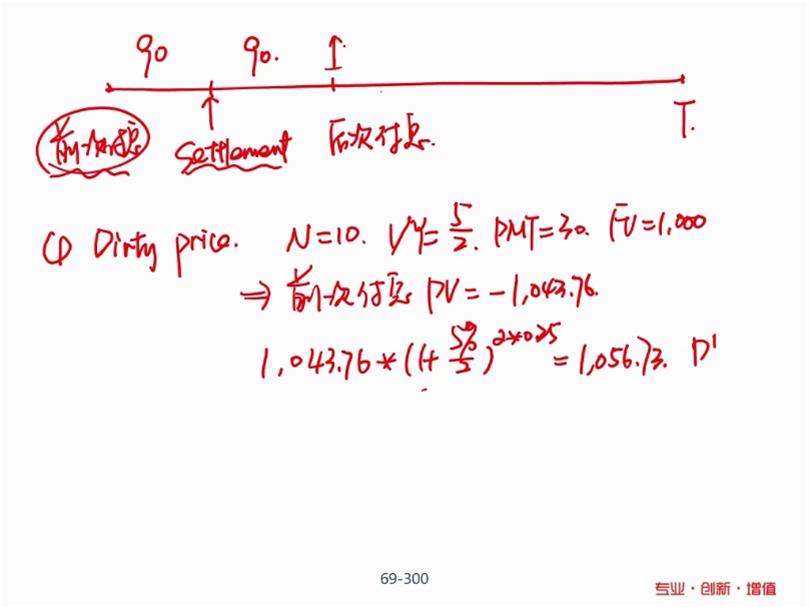 90 90. I.
前次付息 Settlement 后次付息. T.
(1) Dirty price. N=10. I/Y=5/2. PMT=30. FV=1,000
⇒ 前次付息 PV = -1,043.76.
1,043.76*(1+5%/2)^2*0.25=1,056.73. D'
69-300
专业·创新·增值